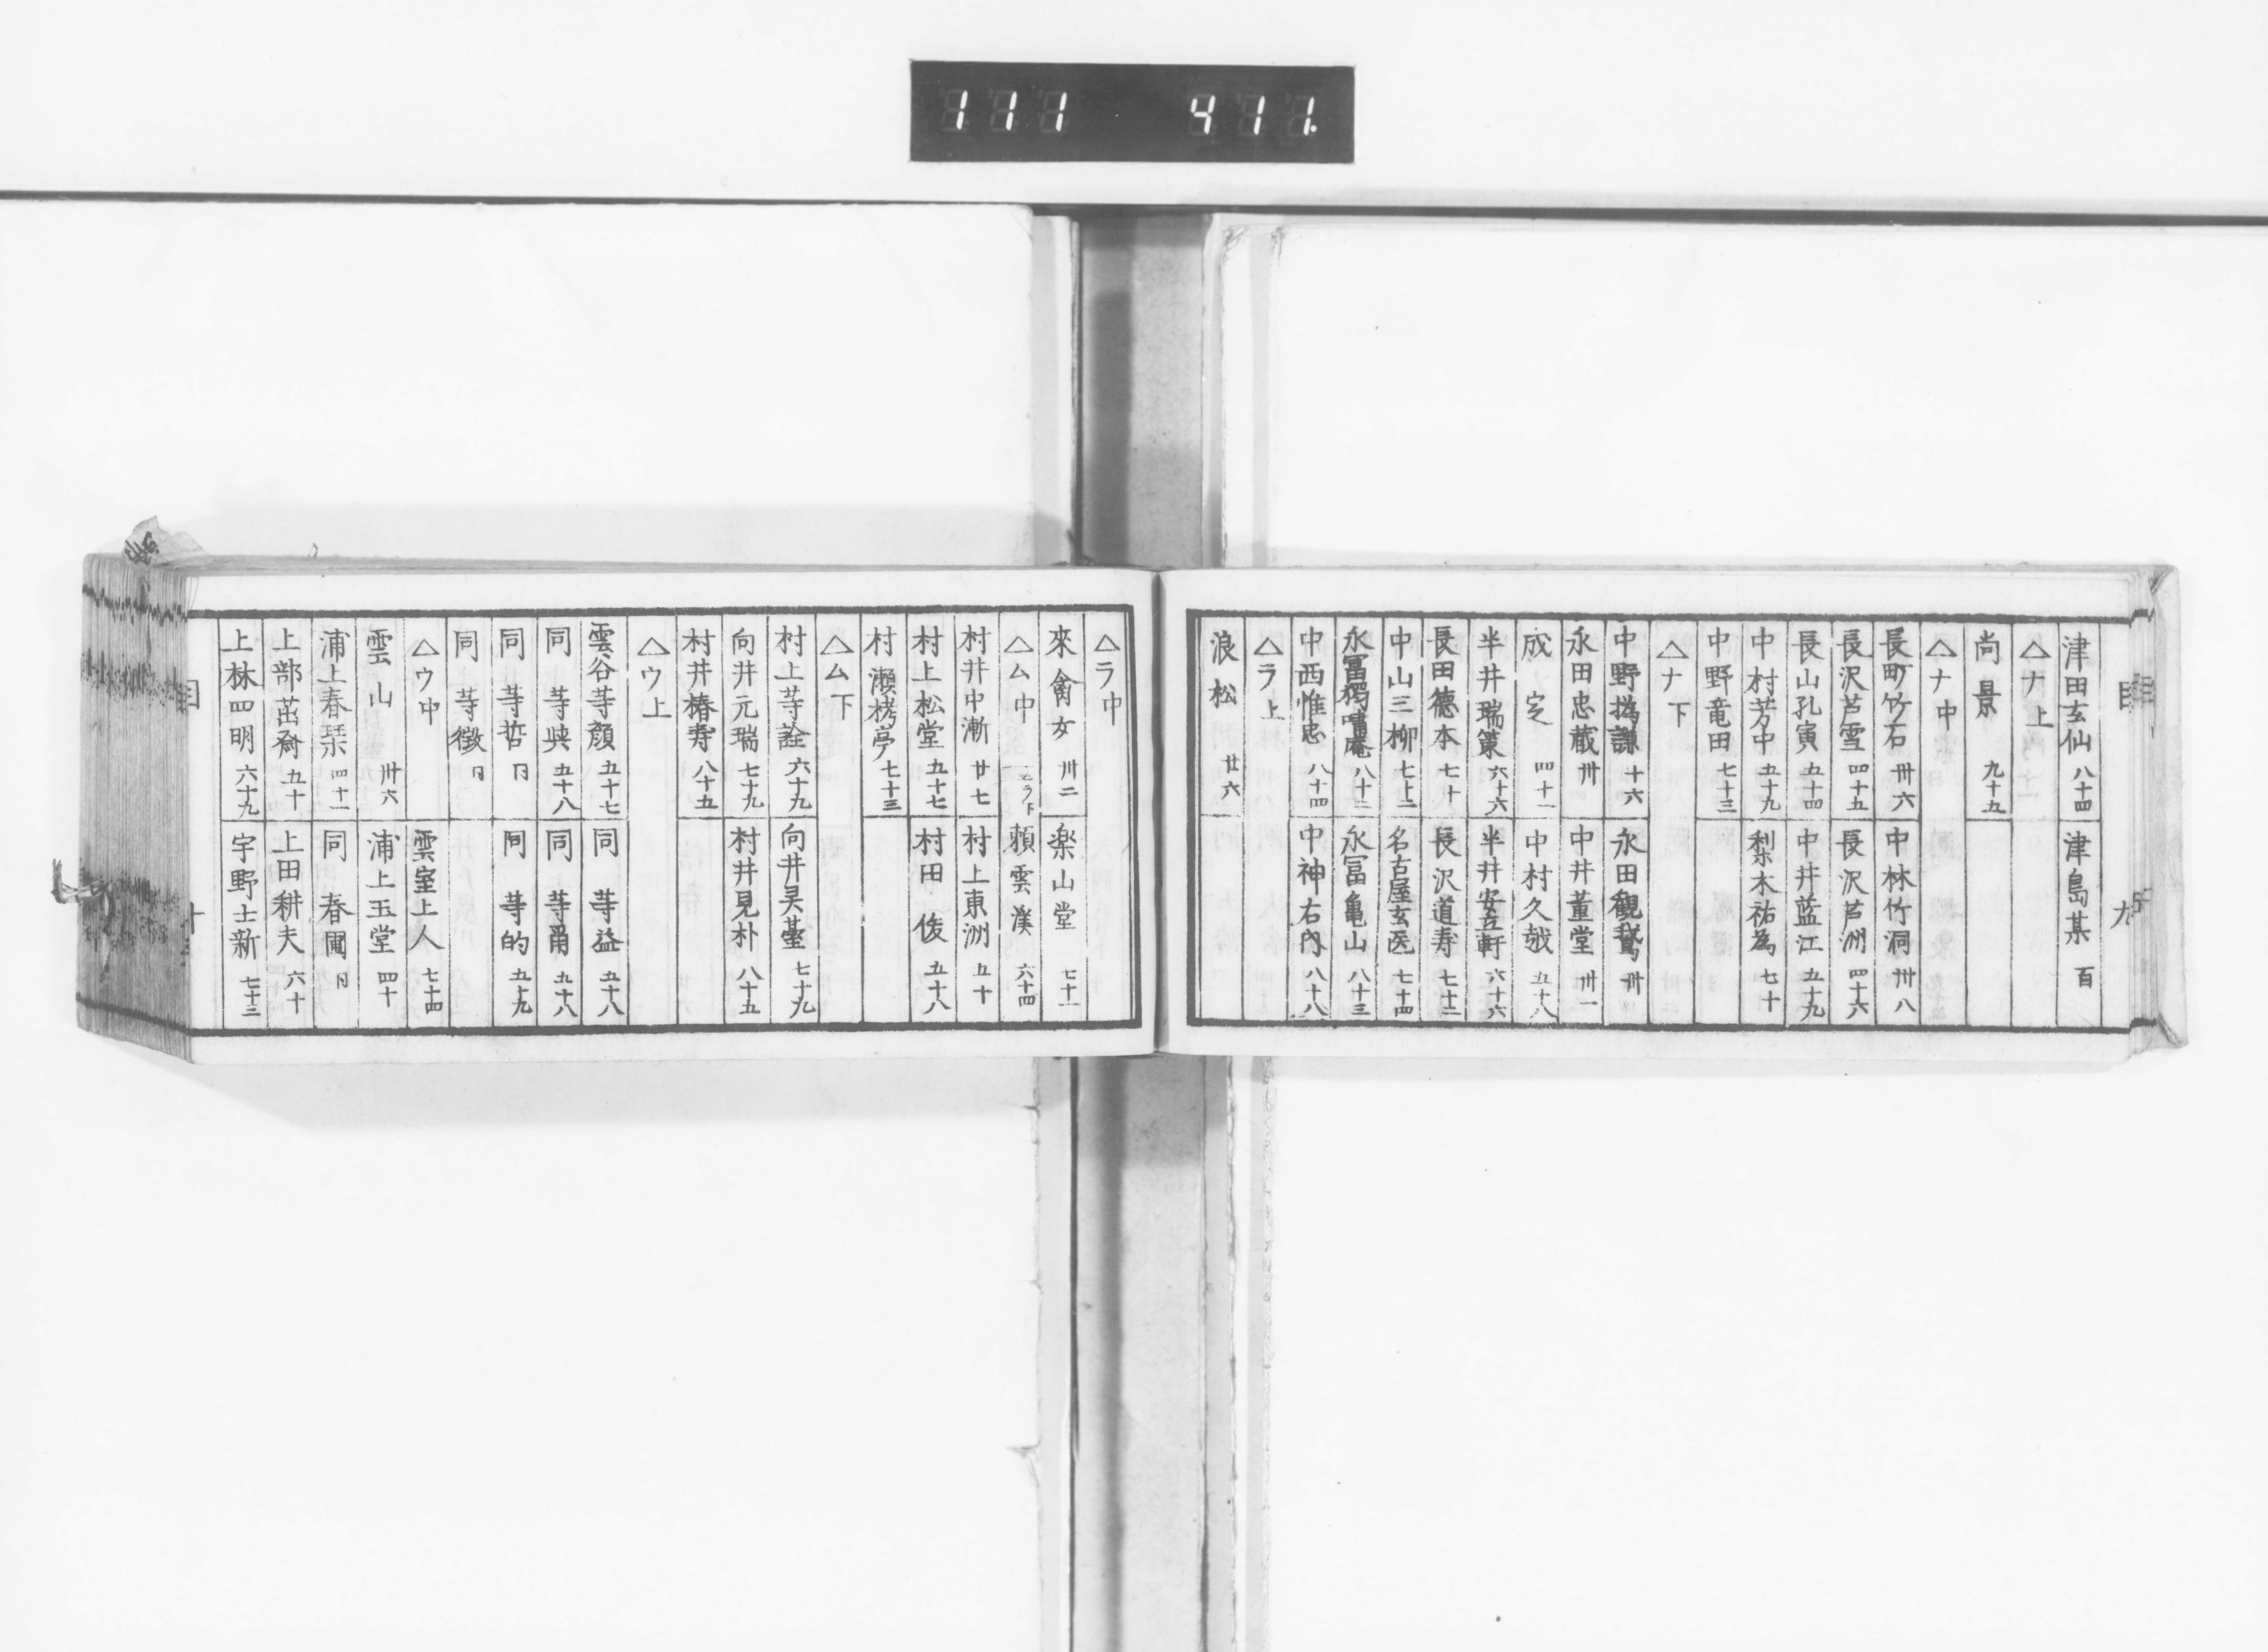 111 411.
目 九
津田玄仙 八十四 津島某 百
△ナ上
尚景 九十九
△ナ中
長町竹石 卅六 中林竹洞 卅八
長沢芦雪 四十五 長沢芦洲 四十六
長山孔寅 五十四 中井藍江 五十九
中村芳中 五十九 梨木祐為 七十
中野竜田 七十三
△ナ下
中野撝謙 十六 永田観鵞 卅
永田忠蔵 卅 中井董堂 卅一
成定 四十一 中村久越 五十八
半井瑞策 六十六 半井安立軒 六十六
長田徳本 七十 長沢道寿 七十二
中山三柳 七十二 名古屋玄医 七十四
永冨獨嘯庵 八十二 永冨亀山 八十三
中西惟忠 八十四 中神右内 八十八
△ラ上
浪松 廿六
△ラ中
來禽女 卅二 楽山堂 七十一
△ム中 △ラ下 頼雲漢 六十四
村井中漸 廿七 村上東洲 五十
村上松堂 五十七 村田俊 五十八
村瀬栲亭 七十三
△ム下
村上等詮 六十九 向井灵蘭 七十九
向井元瑞 七十九 村井見朴 八十五
村井椿寿 八十五
△ウ上
雲谷等顔 五十七 同等益 五十八
同等與 五十八 同等甫 五十八
同等哲 同 同等的 五十九
同等徴 同
△ウ中 雲室上人 七十四
雲山 卅六 浦上玉堂 四十
浦上春琹 四十一 同春圃 同
上部茁斎 五十 上田耕夫 六十
上林四明 六十九 宇野士新 七十三
目 十